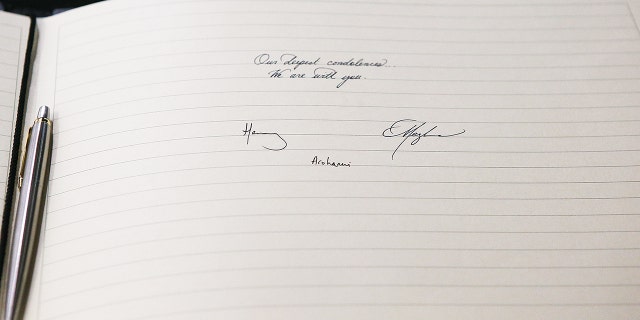 Our deepest condolences.
We are with you.
Harry Meghan
Arohanui